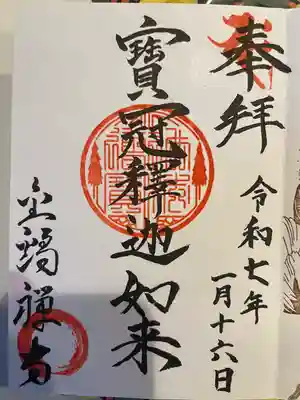 奉拝
令和七年
一月十六日
寶冠釋迦如来
禅寺